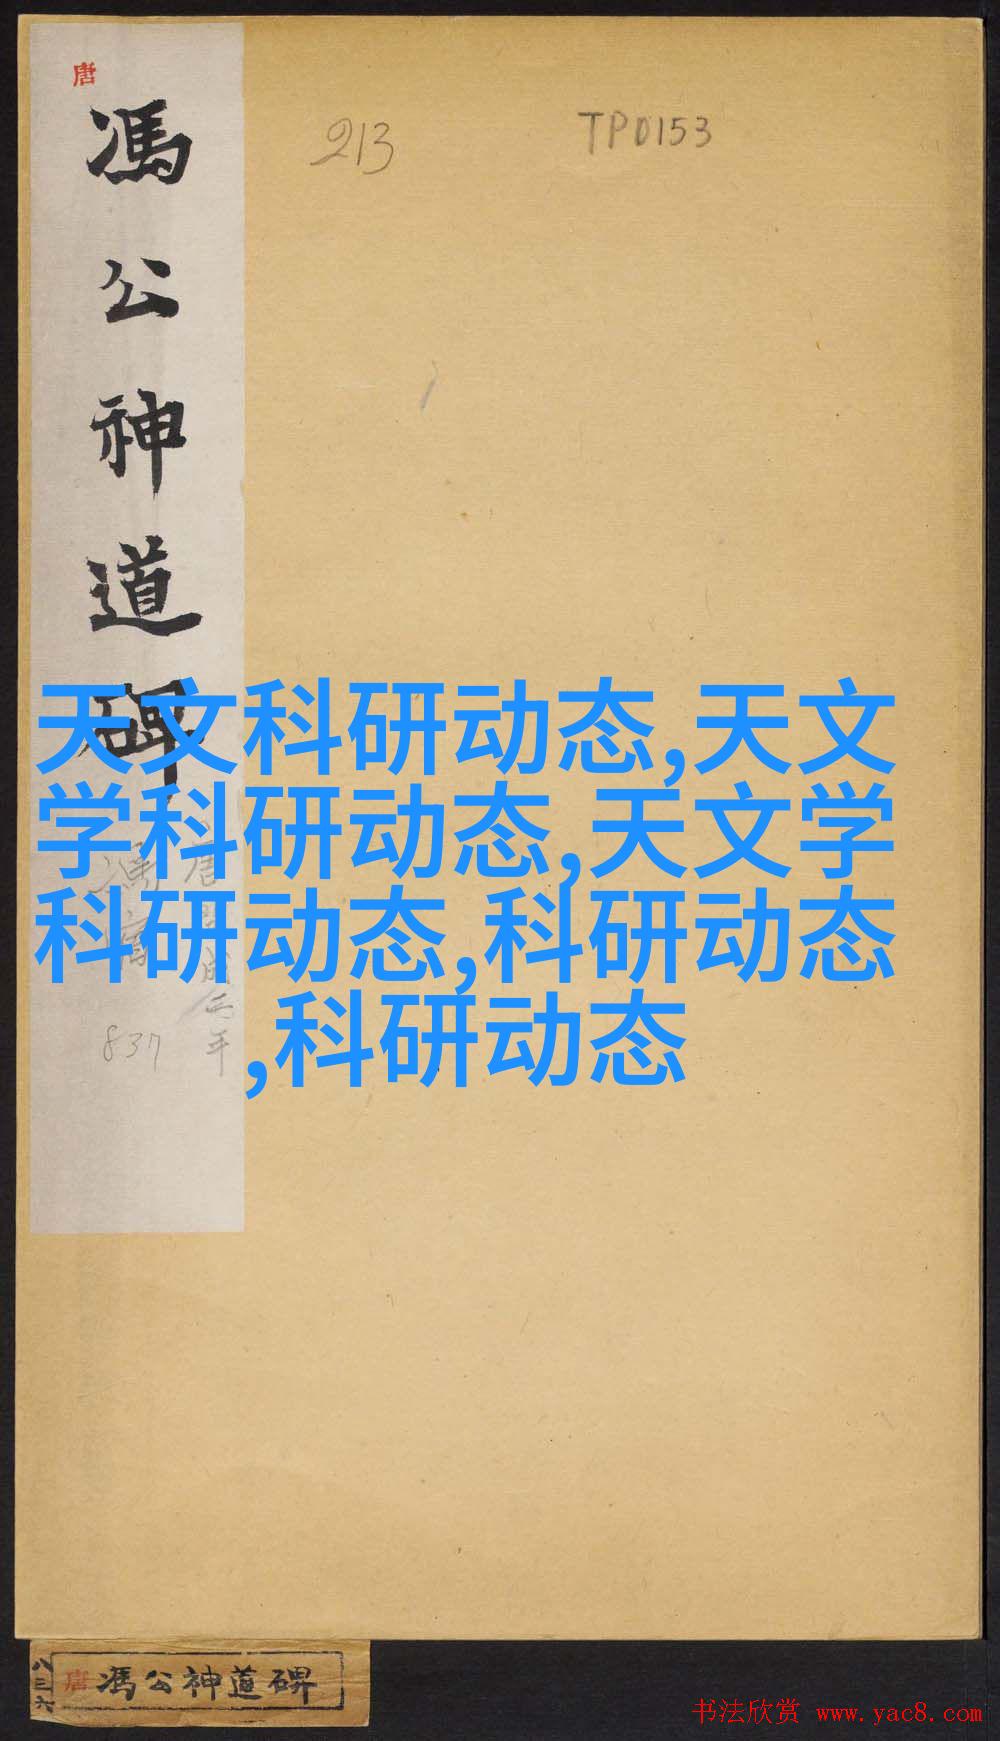 唐
馮公神道碑
213
TP0153
天文科研动态,天文
学科研动态,天文学
科研动态,科研动态
,科研动态
唐
馮
837
八三六
唐 馮公神道碑
书法欣赏 www.yac8.com